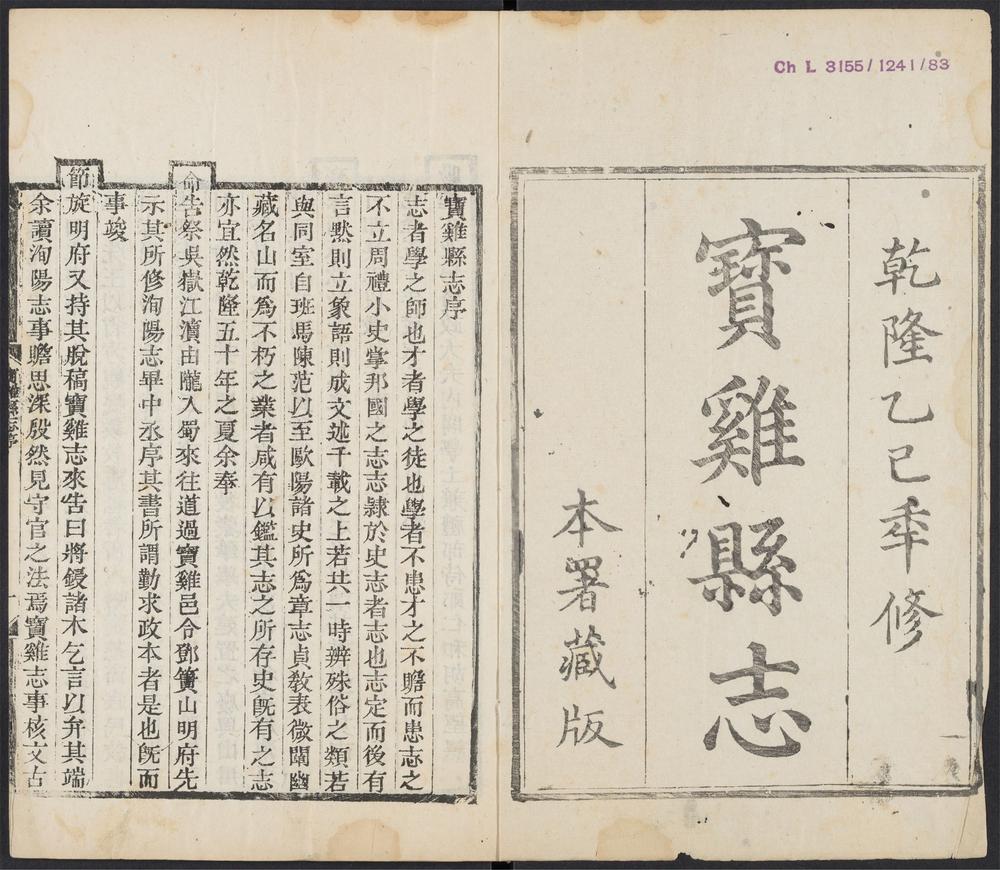 Ch L 3155/1241/83
乾隆乙巳秊修
寶雞縣志
本署藏版
寶雞縣志序
志者學之師也才者學之徒也學者不患才之不贍而患志之
不立周禮小史掌邦國之志志隸於史志者志也志定而後有
言黙則立象語則成文述千載之上若共一時辨殊俗之類若
與同室自班馬陳范以至歐陽諸史所爲章志貞敎表微闡幽
藏名山而爲不朽之業者咸有以鑑其志之所存史旣有之志
亦宜然乾隆五十年之夏余奉
命告祭吳嶽江瀆由隴入蜀來往道過寶雞邑令鄧簣山明府先
示其所修洵陽志畢中丞序其書所謂勤求政本者是也旣而
事竣
節旋明府又持其脫稿寶雞志來告曰將鋟諸木乞言以弁其端
余讀洵陽志事贍思深殷然見守官之法焉寶雞志事核文古
寶雞縣志序
一